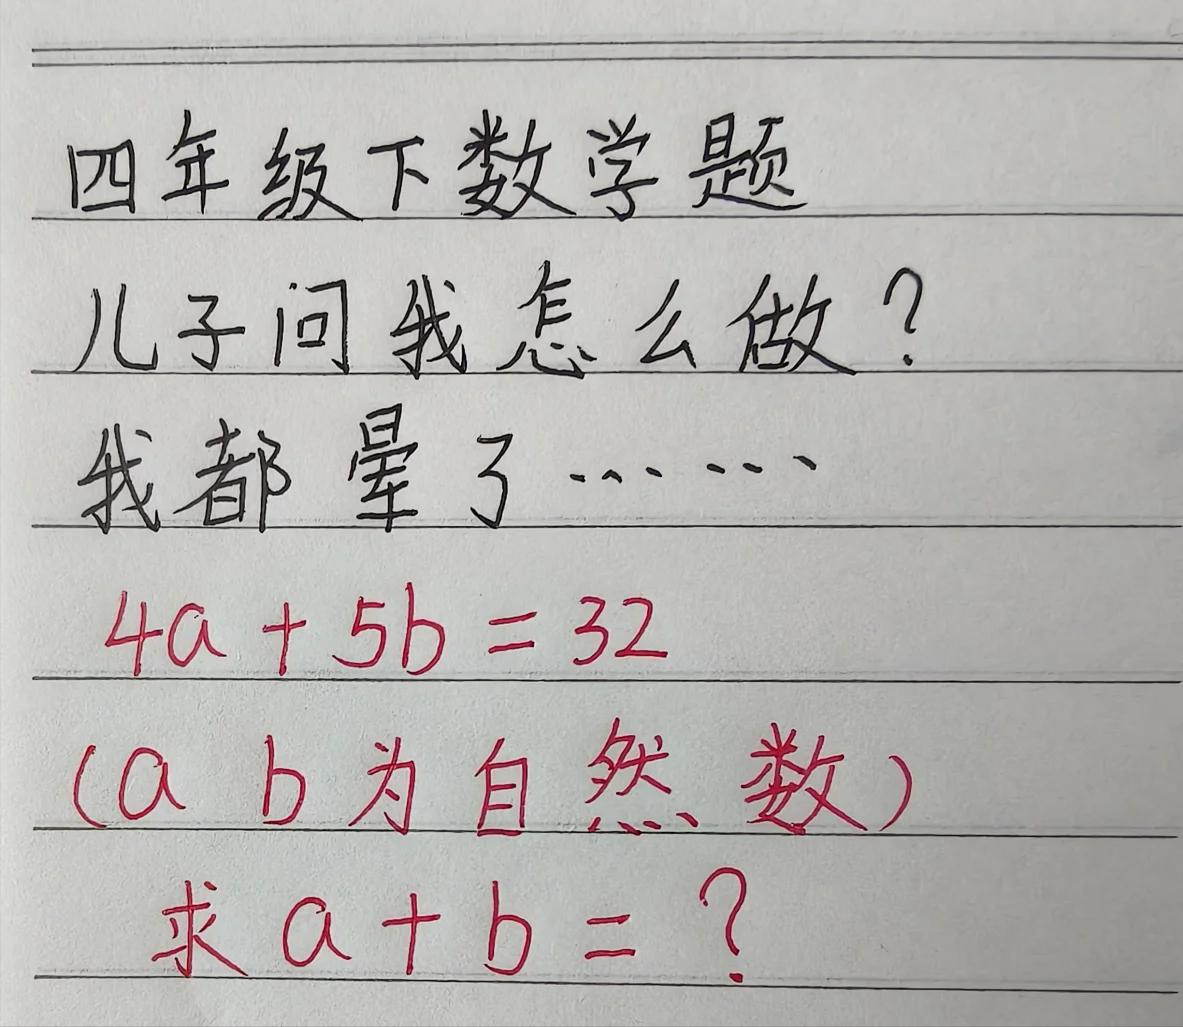 四年级下数学题
儿子问我怎么做?
我都晕了……
4a+5b=32
(a b为自然数)
求a+b=?